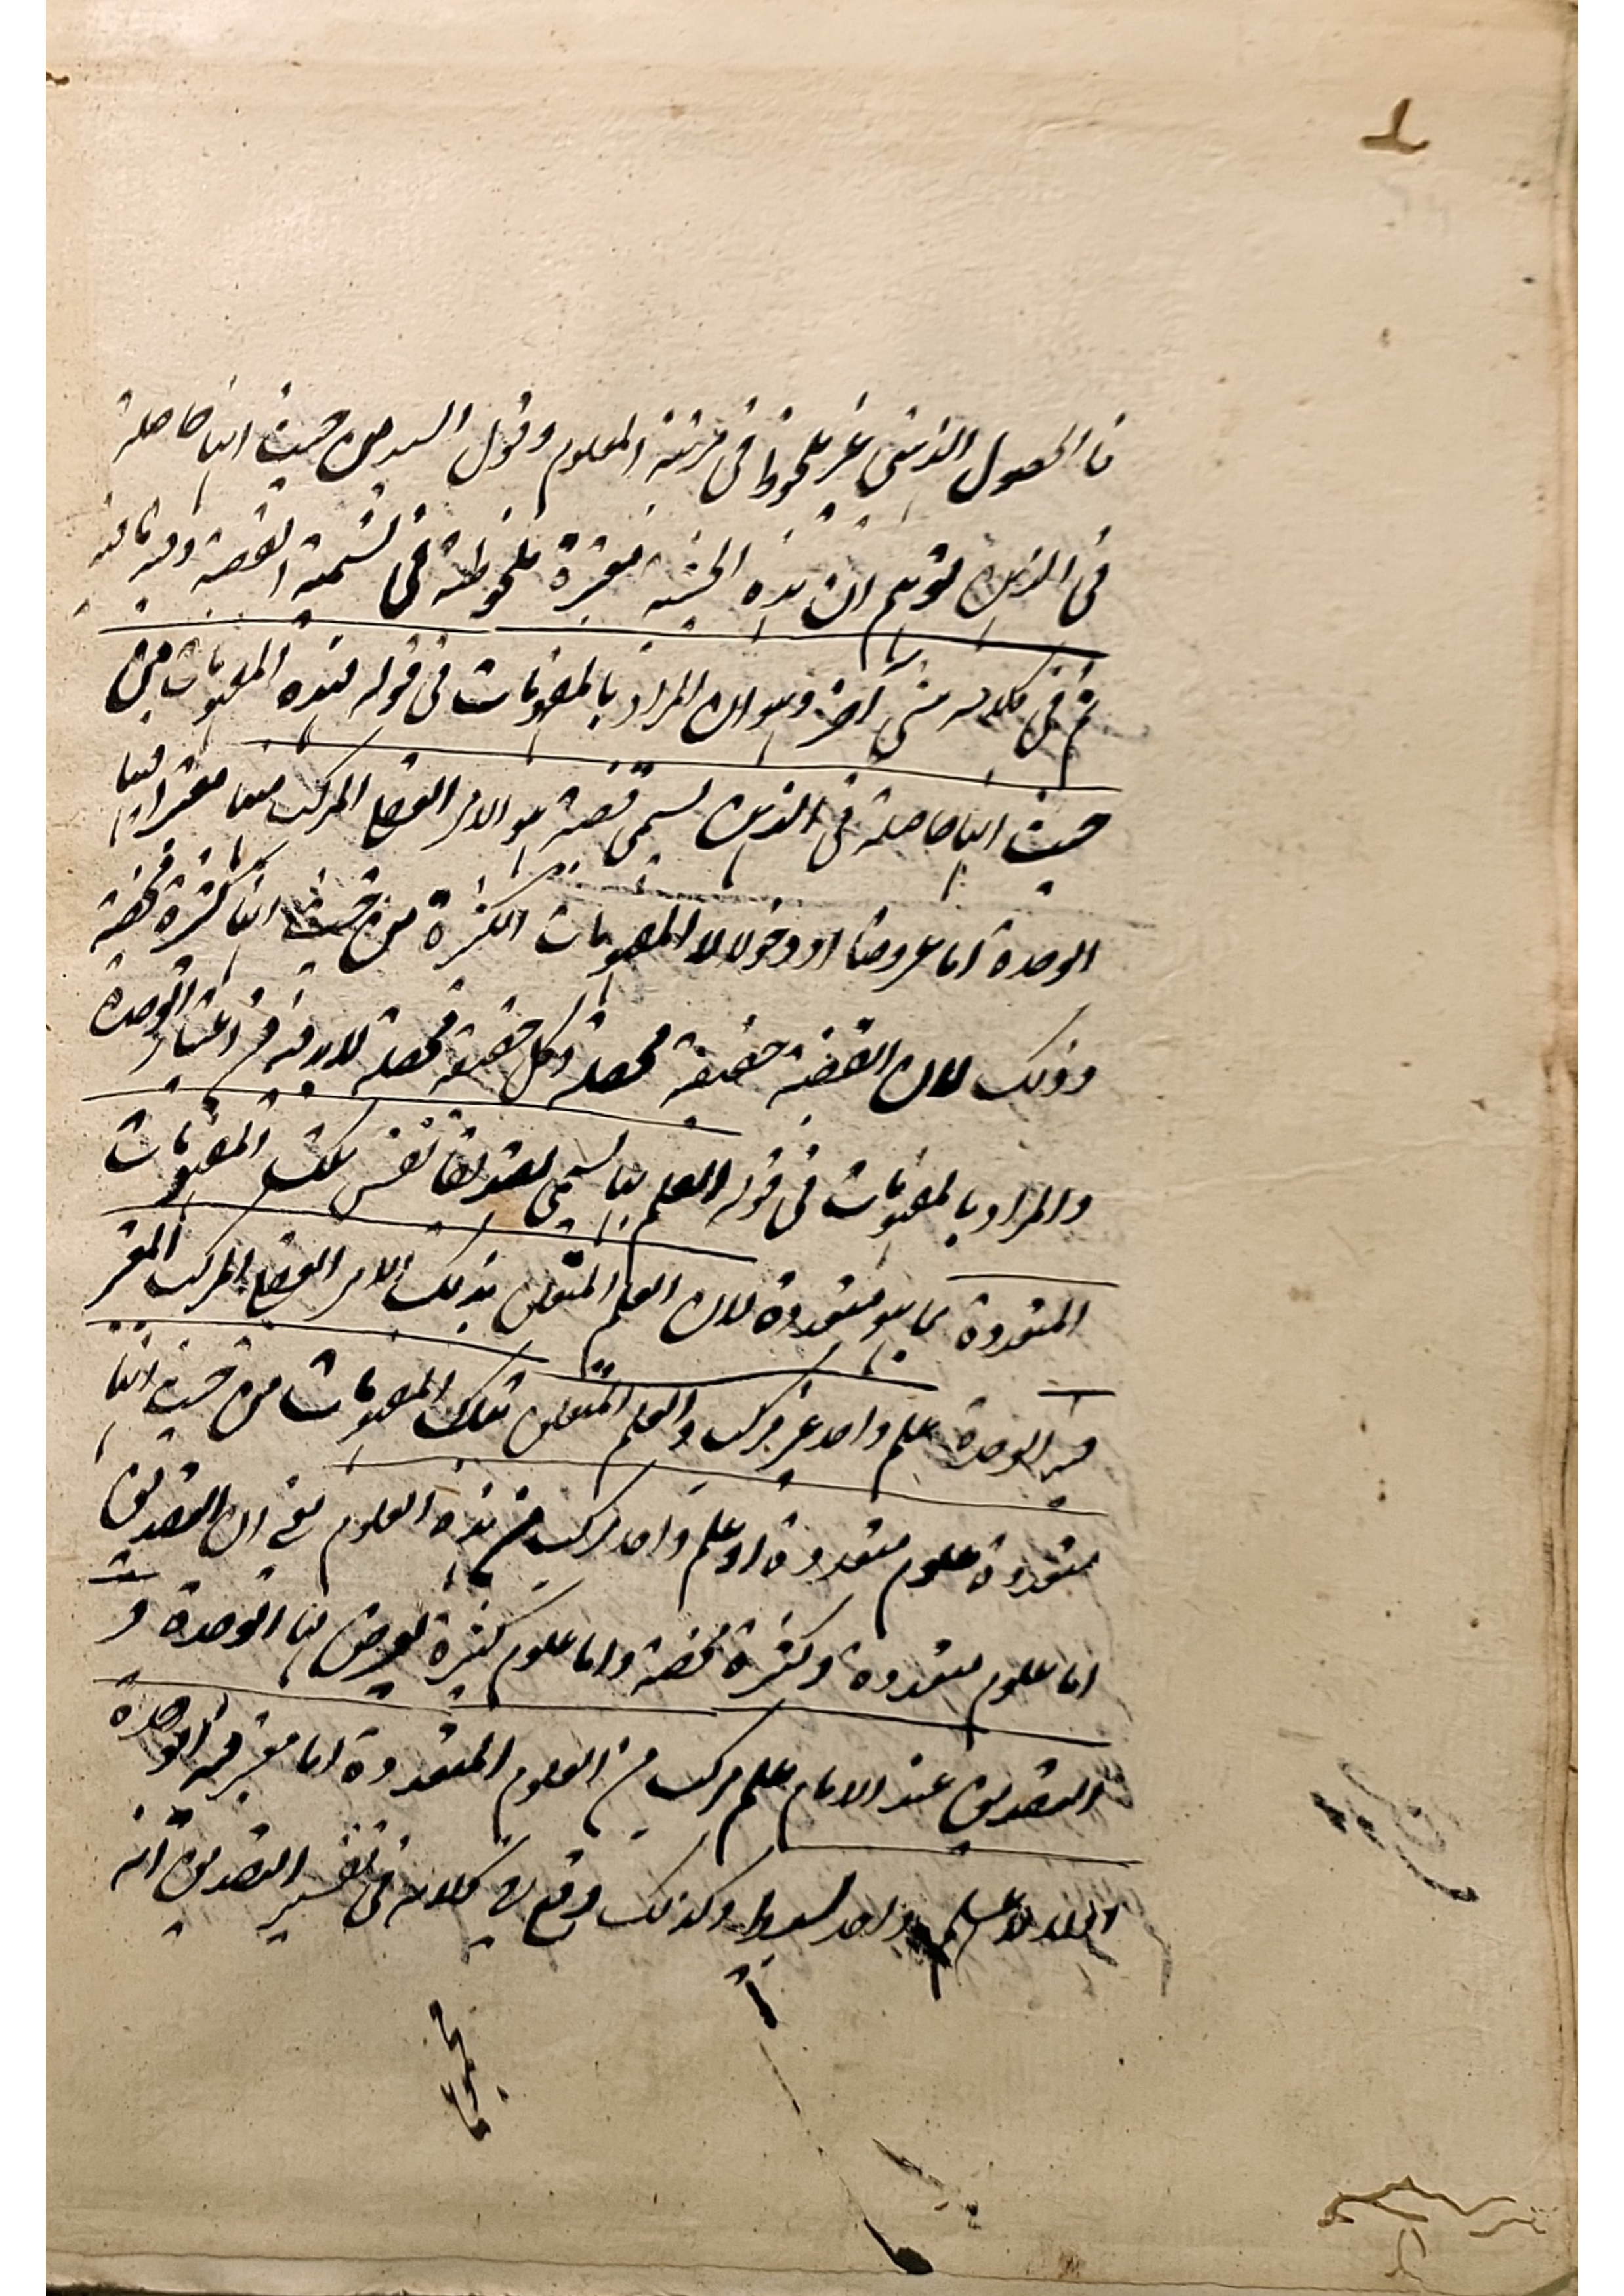 فالحصول الذهني غير ملحوظ في مرتبة المعلوم وقول السيد من حيث انها حاصلة
في الذهن يوهم ان هذه الحيثية معتبرة ملحوظة في تسمية القضية وفيه ما فيه
ثم في كلامه شيء آخر وهو ان المراد بالمفهومات في قوله فهذه المفهومات من
حيث انها حاصلة في الذهن تسمى قضية هو الامر العقلي المركب منها معتبرا فيها
الوحدة اما عروضا او دخولا لا المفهومات الكثيرة من حيث انها كثرة محضة
وذلك لان القضية حقيقة محصلة وكل حقيقة محصلة لابد فيه من اعتبار الوحدة
والمراد بالمفهومات في قوله العلم بها يسمى تصديقا نفس تلك المفهومات
المتعددة بما هو متعددة لان العلم المتعلق بذلك الامر العقلي المركب المعتبر
فيه الوحدة علم واحد غير مركب والعلم المتعلق بتلك المفهومات من حيث انها
متعددة علوم متعددة او علم واحد مركب من هذه العلوم يعني ان التصديق
اما علوم متعددة وكثرة محضة واما علوم كثيرة يعرض لها الوحدة و
التصديق عند الامام علم مركب من العلوم المتعددة اما معتبر فيه الوحدة
لا علم واحد بسيط وكذلك وقع في كلامه في تفسير التصديق انه